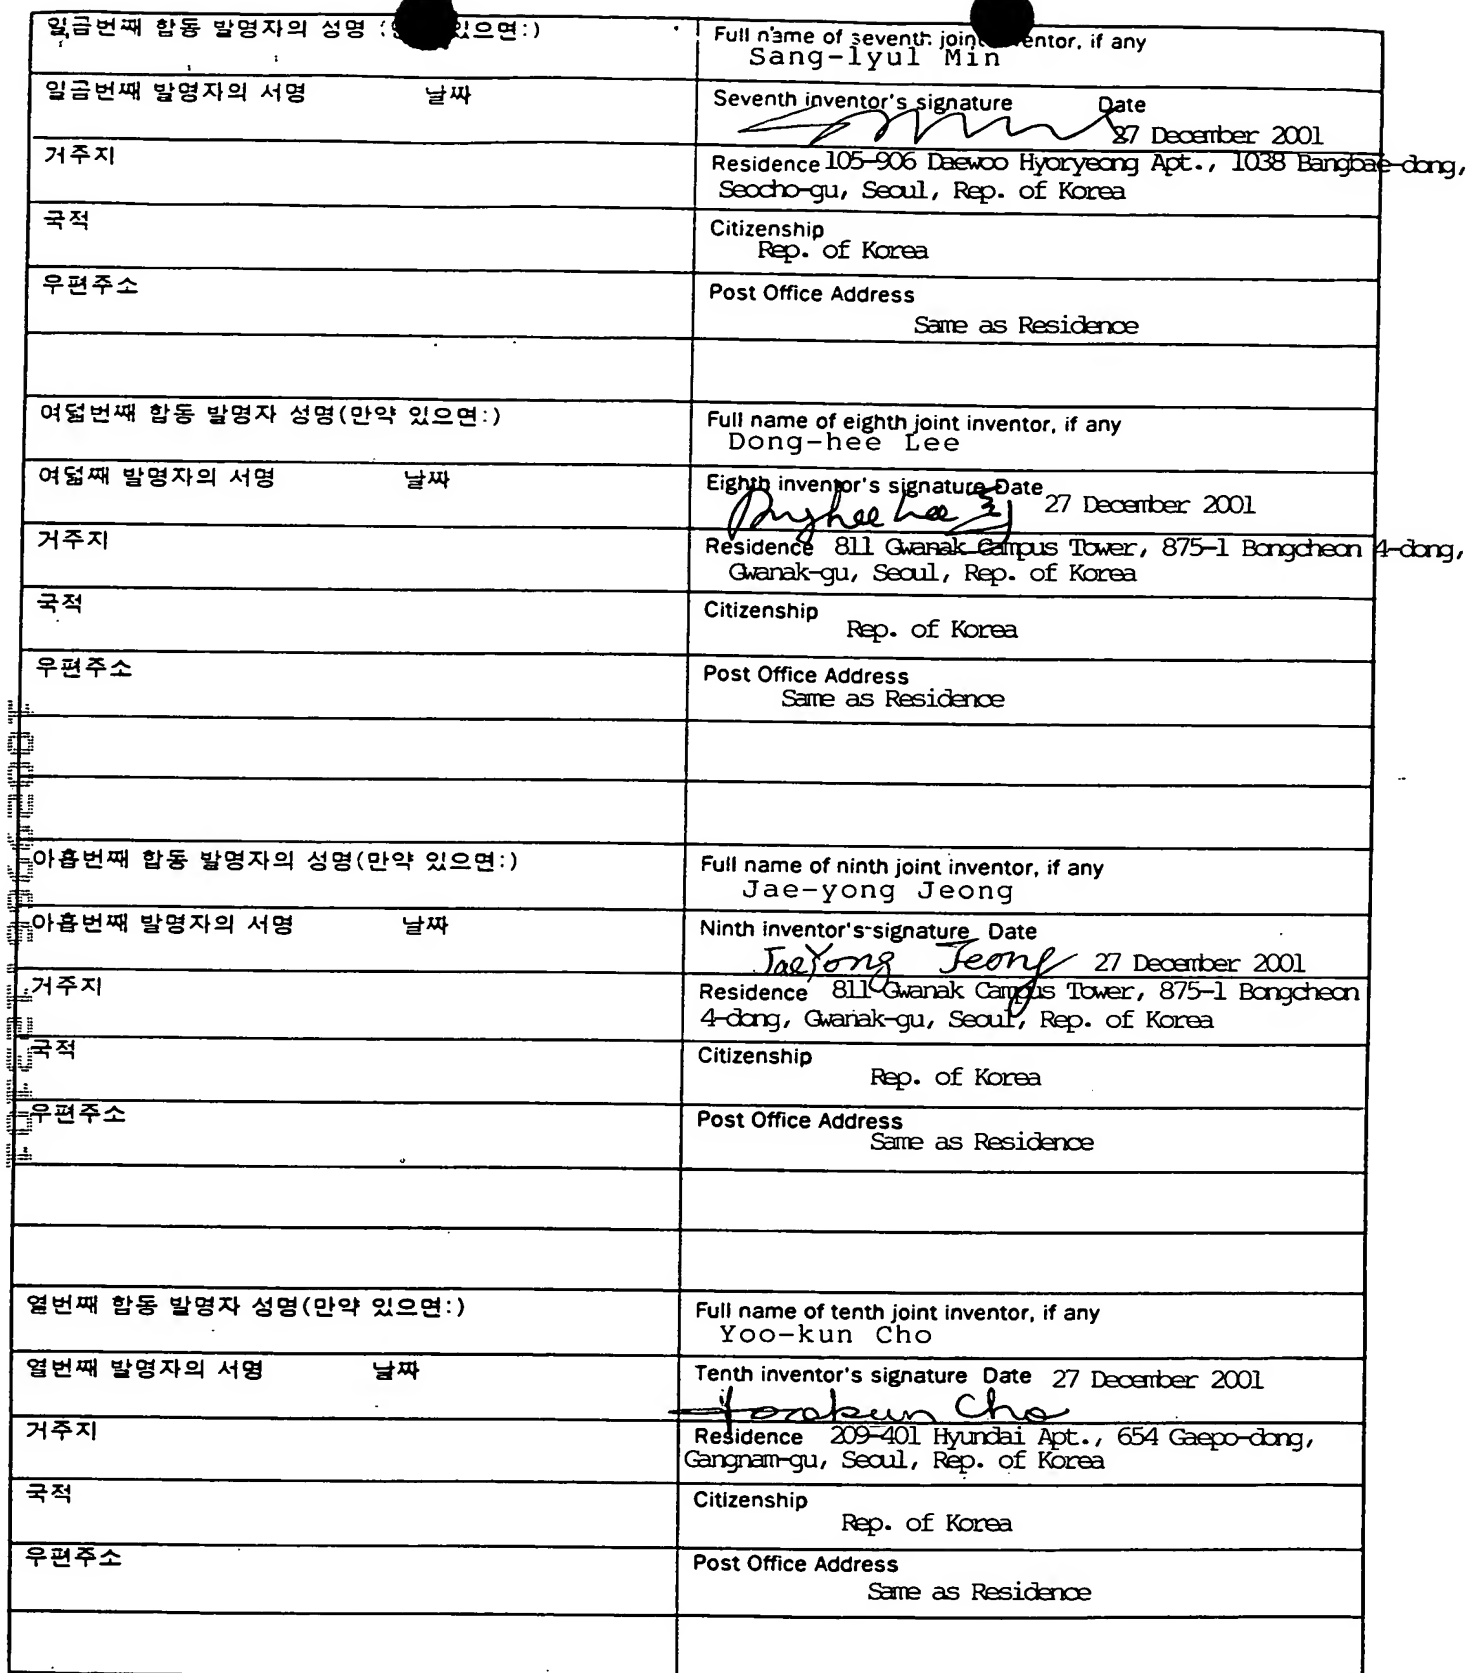 일곱번째 합동 발명자의 성명 있으면:)
Full name of seventh joint inventor, if any
Sang-lyul Min
일곱번째 발명자의 서명 날짜
Seventh inventor's signature Date
27 December 2001
거주지
Residence 105-906 Daewoo Hyoryeong Apt., 1038 Bangbae-dong,
Seocho-gu, Seoul, Rep. of Korea
국적
Citizenship
Rep. of Korea
우편주소
Post Office Address
Same as Residence
여덟번째 합동 발명자 성명(만약 있으면:)
Full name of eighth joint inventor, if any
Dong-hee Lee
여덟째 발명자의 서명 날짜
Eighth inventor's signature Date
Donghee Lee 희 27 December 2001
거주지
Residence 811 Gwanak Campus Tower, 875-1 Bongcheon 4-dong,
Gwanak-gu, Seoul, Rep. of Korea
국적
Citizenship
Rep. of Korea
우편주소
Post Office Address
Same as Residence
아홉번째 합동 발명자의 성명(만약 있으면:)
Full name of ninth joint inventor, if any
Jae-yong Jeong
아홉번째 발명자의 서명 날짜
Ninth inventor's signature Date
JaeYong Jeong 27 December 2001
거주지
Residence 811 Gwanak Campus Tower, 875-1 Bongcheon
4-dong, Gwanak-gu, Seoul, Rep. of Korea
국적
Citizenship
Rep. of Korea
우편주소
Post Office Address
Same as Residence
열번째 합동 발명자 성명(만약 있으면:)
Full name of tenth joint inventor, if any
Yoo-kun Cho
열번째 발명자의 서명 날짜
Tenth inventor's signature Date 27 December 2001
Yookun Cho
거주지
Residence 209-401 Hyundai Apt., 654 Gaepo-dong,
Gangnam-gu, Seoul, Rep. of Korea
국적
Citizenship
Rep. of Korea
우편주소
Post Office Address
Same as Residence